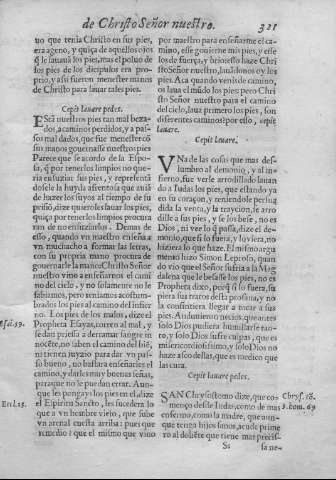 de Christo Señor nuestro. 321
uo que tenia Christo en sus pies,
era ageno, y quiça de aquellos ojos
q̃ le lauauā los pies, mas el poluo de
los pies de los dicipulos era pro-
prio, y assi fueron menester manos
de Christo para lauar tales pies.
Cepit lauare pedes.
ESta nuestros pies tan mal beza-
dos, a caminos perdidos, y a pas-
sos mal dados, que fue menester cō
sus manos gouernasse nuestros pies
Parece que se acordo de la Espo-
sa, q̃ por tenerlos limpios no que-
ria ensuziar sus pies, y represento
dosele la huyda afrentosa que auiā
de hazer los suyos al tiempo de su
prisiō, dize quierolos lauar los pies,
quiça por tenerlos limpios procura
ran de no ensuziarlos. Demas de
esso, quando vn maestro enseña a
vn muchacho a formar las letras,
con su propria mano procura de
gouernarle la mano: Christo Señor
nuestro vino a enseñarnos el cami
no del cielo, y no solamente no le
sabiamos, pero teniamos acostum-
brados los pies al camino del infier
no. Los pies de los malos, dize el
Propheta Esayas, corren al mal, y
se dan priessa a derramar sangre in
nocēte, no saben el camino del biē,
ni tienen juyzio para dar vn pas-
so bueno, no bastara enseñarles el
camino, y darles muy buenas señas,
para que no le puedan errar. Aun-
que les pongays los pies en el, dize
el Espiritu Sancto, les sucedera lo
que a vn hombre viejo, que sube
vn arenal cuesta arriba: pues que
remedio? que el mismo que vino
Esai. 59.
Eccl. 25.
por maestro para enseñarme el ca-
mino, esse gouierne mis pies, y esse
los de fuerça, y brio: esso haze Chri
sto Señor nuestro, lauādonos oy los
pies. Aca quando venis de camino,
os laua el moço los pies: pero Chri
sto Señor nuestro para el camino
del cielo, laua primero los pies, son
diferentes caminos: por esso, cepit
lauare.
Cepit lauare.
VNa de las cosas que mas des-
lumbro al demonio, y al in-
fierno, fue verle arrodillado lauan
do a Iudas los pies, que estando ya
en su coraçon, y teniendole persua
dida la venta, y la traycion, se arro
dille a sus pies, y se los bese, no es
Dios, ni ver lo q̃ passa, dize el de-
monio, que si lo fuera, y lo viera, no
hiziera lo que haze. El mismo argu
mento hizo Simon Leproso, quan
do vio que el Señor sufria a la Mag
dalena que le besasse los pies, no es
Propheta dixo, porq̃ si lo fuera, su
piera sus tratos desta prosana, y no
la consintiera llegar a tocar a sus
pies. Anduuiero nnecios, que antes
solo Dios pudiera humillarse tan-
to, y solo Dios sufre culpas, que es
misericordiosissimo, y solo Dios no
haze asco dellas, que es medico que
las cura.
Cepit lauare pedes.
SAN Chrysostomo dize, que co-
menço desde Iudas, como de mas
enfermo, como la madre, que aun-
que tenga hijos sanos, acude prime
ro al doliēte que tiene mas precis-
Chrys. tō.
3. hom. 69
Ss sa ne-